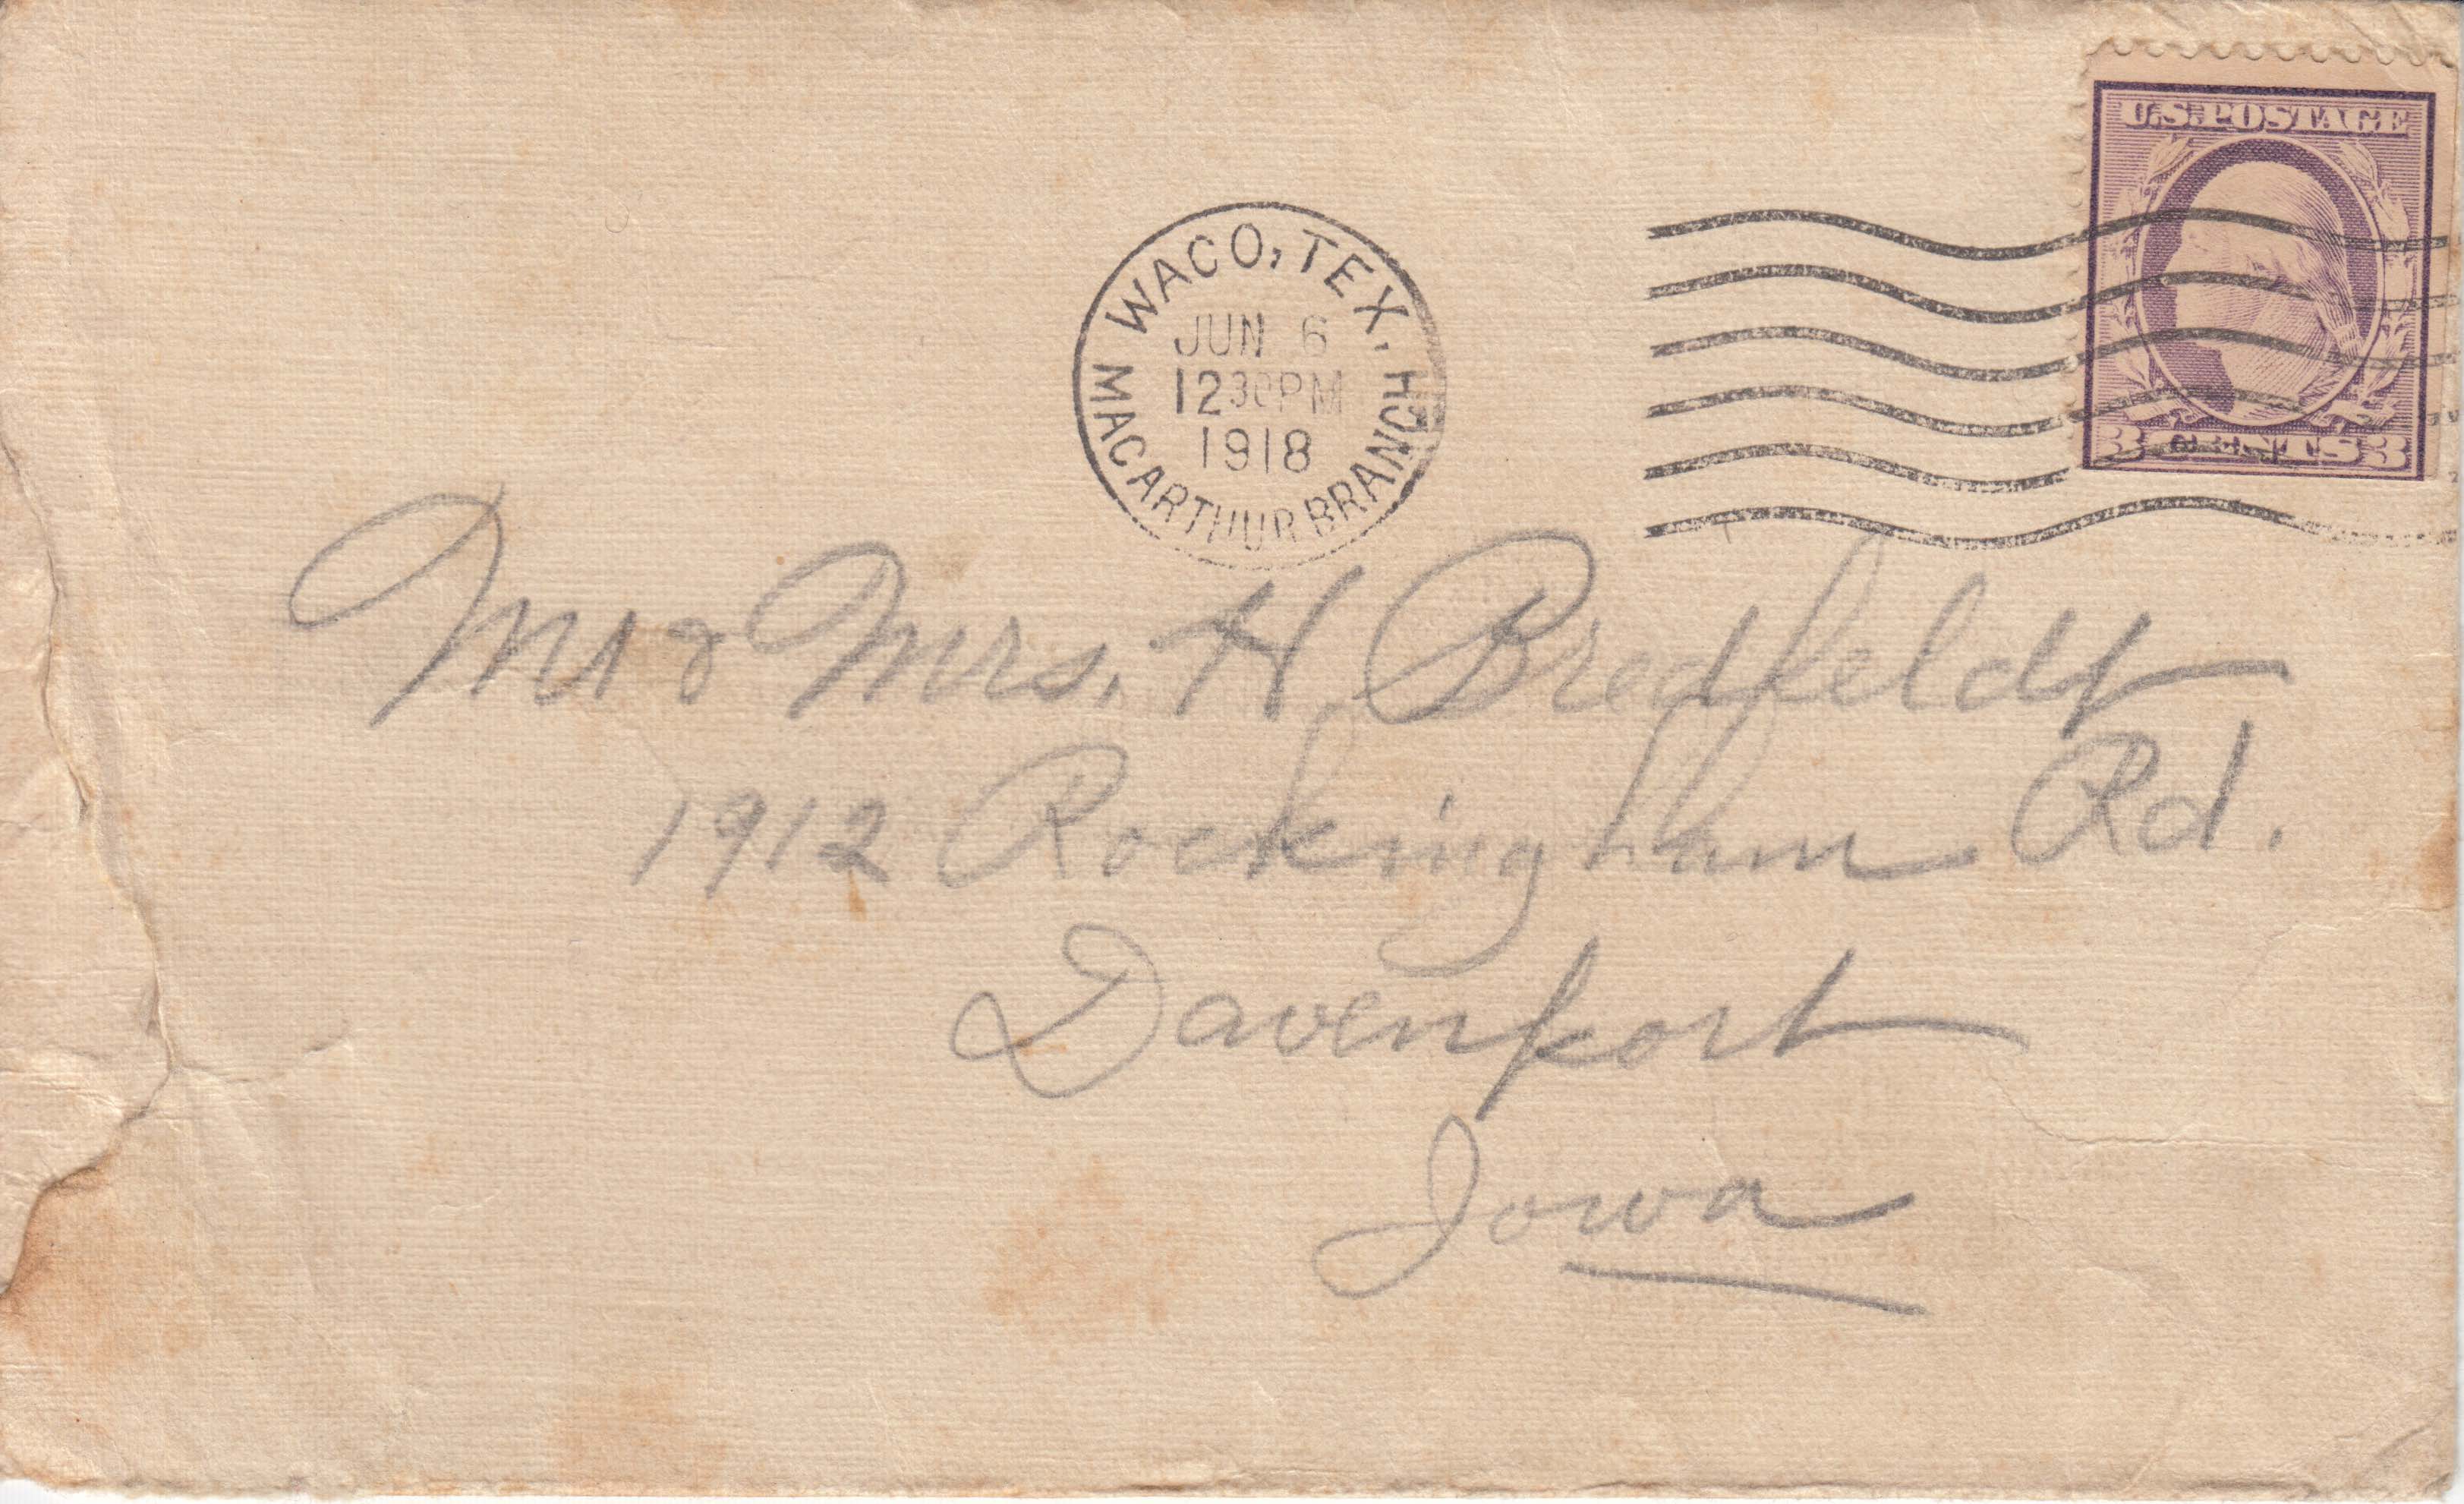 U.S. POSTAGE
3 CENTS 3
WACO, TEX.
JUN 6
12 30 PM
1918
MACARTHUR BRANCH
Mr & Mrs. H Bredfeldt
1912 Rockingham Rd.
Davenport
Iowa